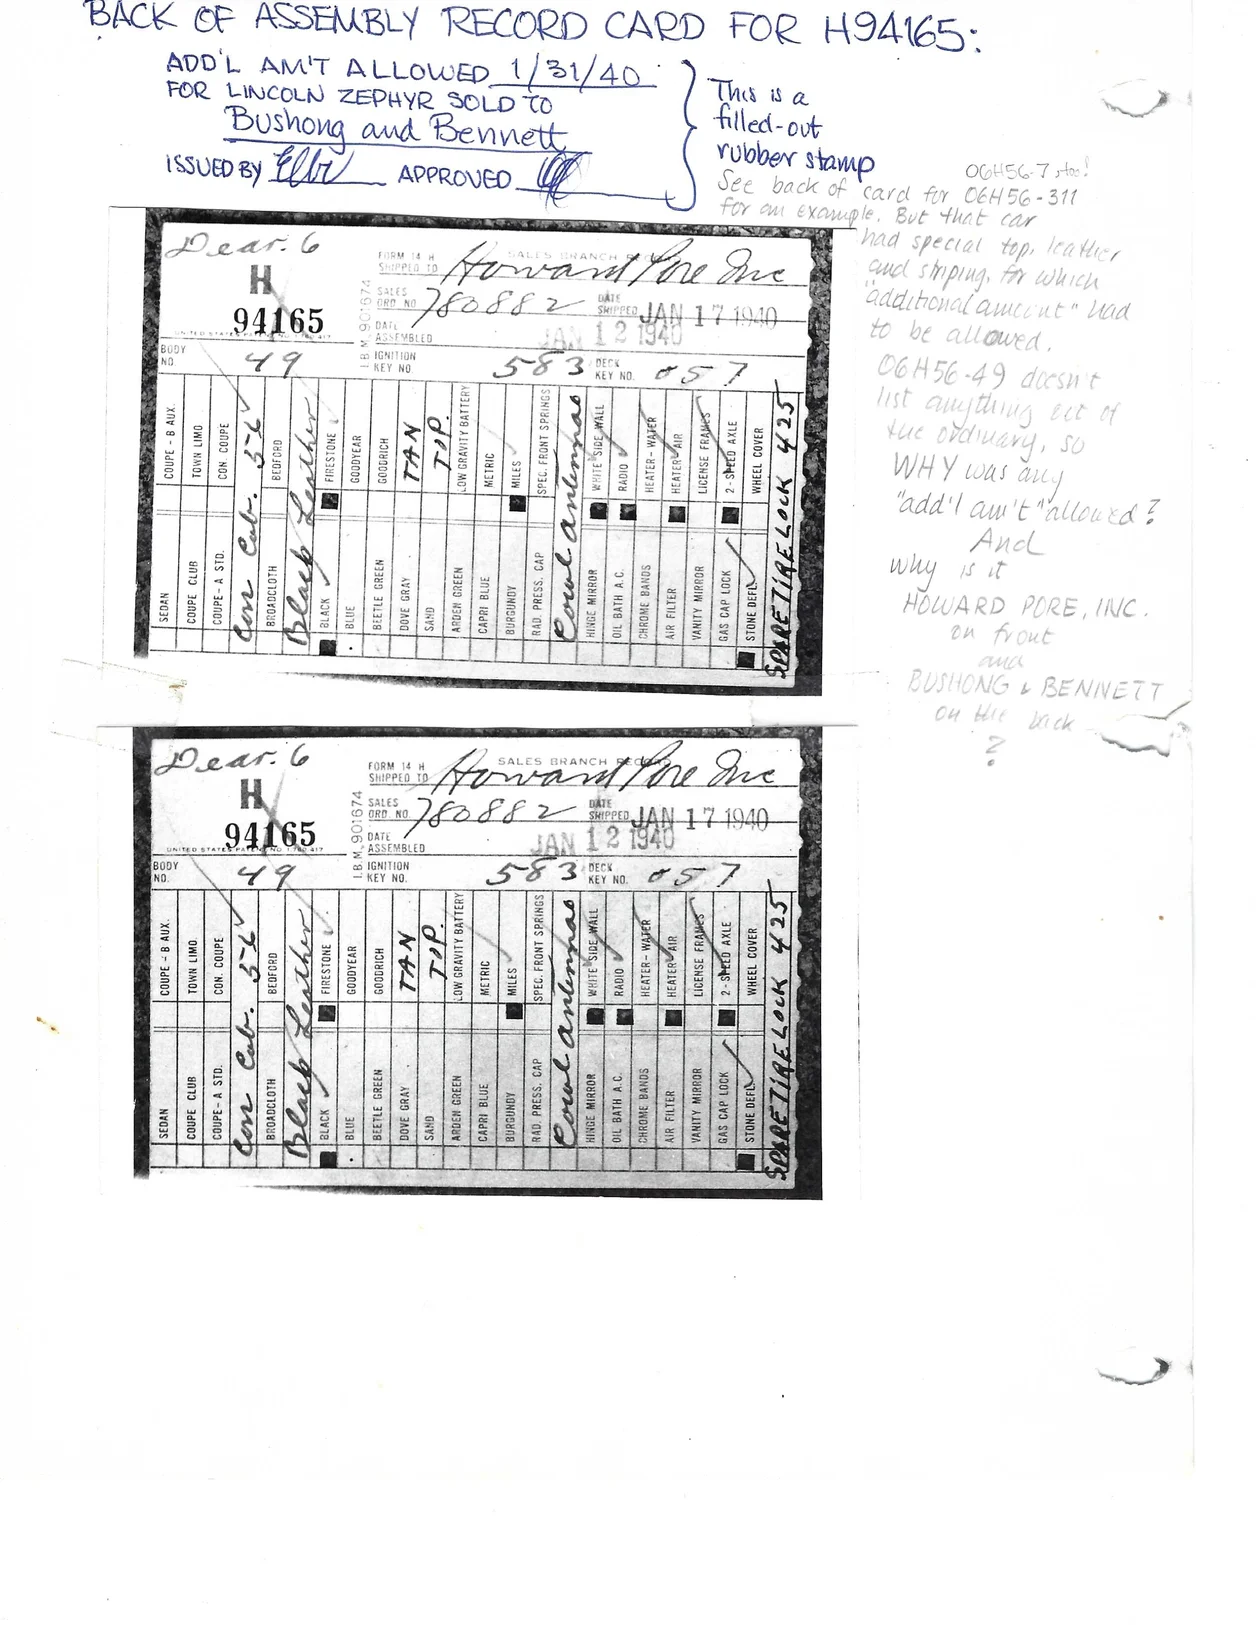 BACK OF ASSEMBLY RECORD CARD FOR H94165:
ADD'L AM'T ALLOWED 1/31/40
FOR LINCOLN ZEPHYR SOLD TO
Bushong and Bennett
ISSUED BY APPROVED
This is a
filled-out
rubber stamp
06H56-7 too!
See back of card for 06H56-311
for an example. But that car
had special top, leather
and striping, for which
"additional amount" had
to be allowed.
06H56-49 doesn't
list anything out of
the ordinary, so
WHY was any
"add'l am't" allowed?
And
why is it
HOWARD PORE, INC.
on front
and
BUSHONG & BENNETT
on the back
?
Dear. 6
H
94165
FORM 14 H
SALES BRANCH RECORD
SHIPPED TO Howard Pore Inc
I.B.M. 901674
SALES ORD NO 780882
DATE SHIPPED JAN 17 1940
DATE ASSEMBLED JAN 12 1940
BODY NO. 49
IGNITION KEY NO. 583
DECK KEY NO. 057
COUPE - B AUX.
TOWN LIMO
CON. COUPE
56
BEDFORD
FIRESTONE
GOODYEAR
GOODRICH
TAN
TOP.
LOW GRAVITY BATTERY
METRIC
MILES
SPEC. FRONT SPRINGS
WHITE SIDE WALL
RADIO
HEATER-WATER
HEATER-AIR
LICENSE FRAMES
2-SPEED AXLE
WHEEL COVER
SEDAN
COUPE CLUB
COUPE-A STD.
Con Cab.
BROADCLOTH
Black Leather
BLACK
BLUE
BEETLE GREEN
DOVE GRAY
SAND
ARDEN GREEN
CAPRI BLUE
BURGUNDY
RAD. PRESS. CAP
Cowl antennas
HINGE MIRROR
OIL BATH A.C.
CHROME BANDS
AIR FILTER
VANITY MIRROR
GAS CAP LOCK
STONE DEFL.
SPARE TIRE LOCK 425
Dear. 6
H
94165
UNITED STATES PATENT NO
FORM 14 H
SALES BRANCH RECORD
SHIPPED TO Howard Pore Inc
I.B.M. 901674
SALES ORD. NO. 780882
DATE SHIPPED JAN 17 1940
DATE ASSEMBLED JAN 12 1940
BODY NO. 49
IGNITION KEY NO. 583
DECK KEY NO. 057
COUPE - B AUX.
TOWN LIMO
CON. COUPE
56
BEDFORD
FIRESTONE
GOODYEAR
GOODRICH
TAN
TOP.
LOW GRAVITY BATTERY
METRIC
MILES
SPEC. FRONT SPRINGS
WHITE SIDE WALL
RADIO
HEATER-WATER
HEATER-AIR
LICENSE FRAMES
2-SPEED AXLE
WHEEL COVER
SEDAN
COUPE CLUB
COUPE-A STD.
Con Cab.
BROADCLOTH
Black Leather
BLACK
BLUE
BEETLE GREEN
DOVE GRAY
SAND
ARDEN GREEN
CAPRI BLUE
BURGUNDY
RAD. PRESS. CAP
Cowl antennas
HINGE MIRROR
OIL BATH A.C.
CHROME BANDS
AIR FILTER
VANITY MIRROR
GAS CAP LOCK
STONE DEFL.
SPARE TIRE LOCK 425